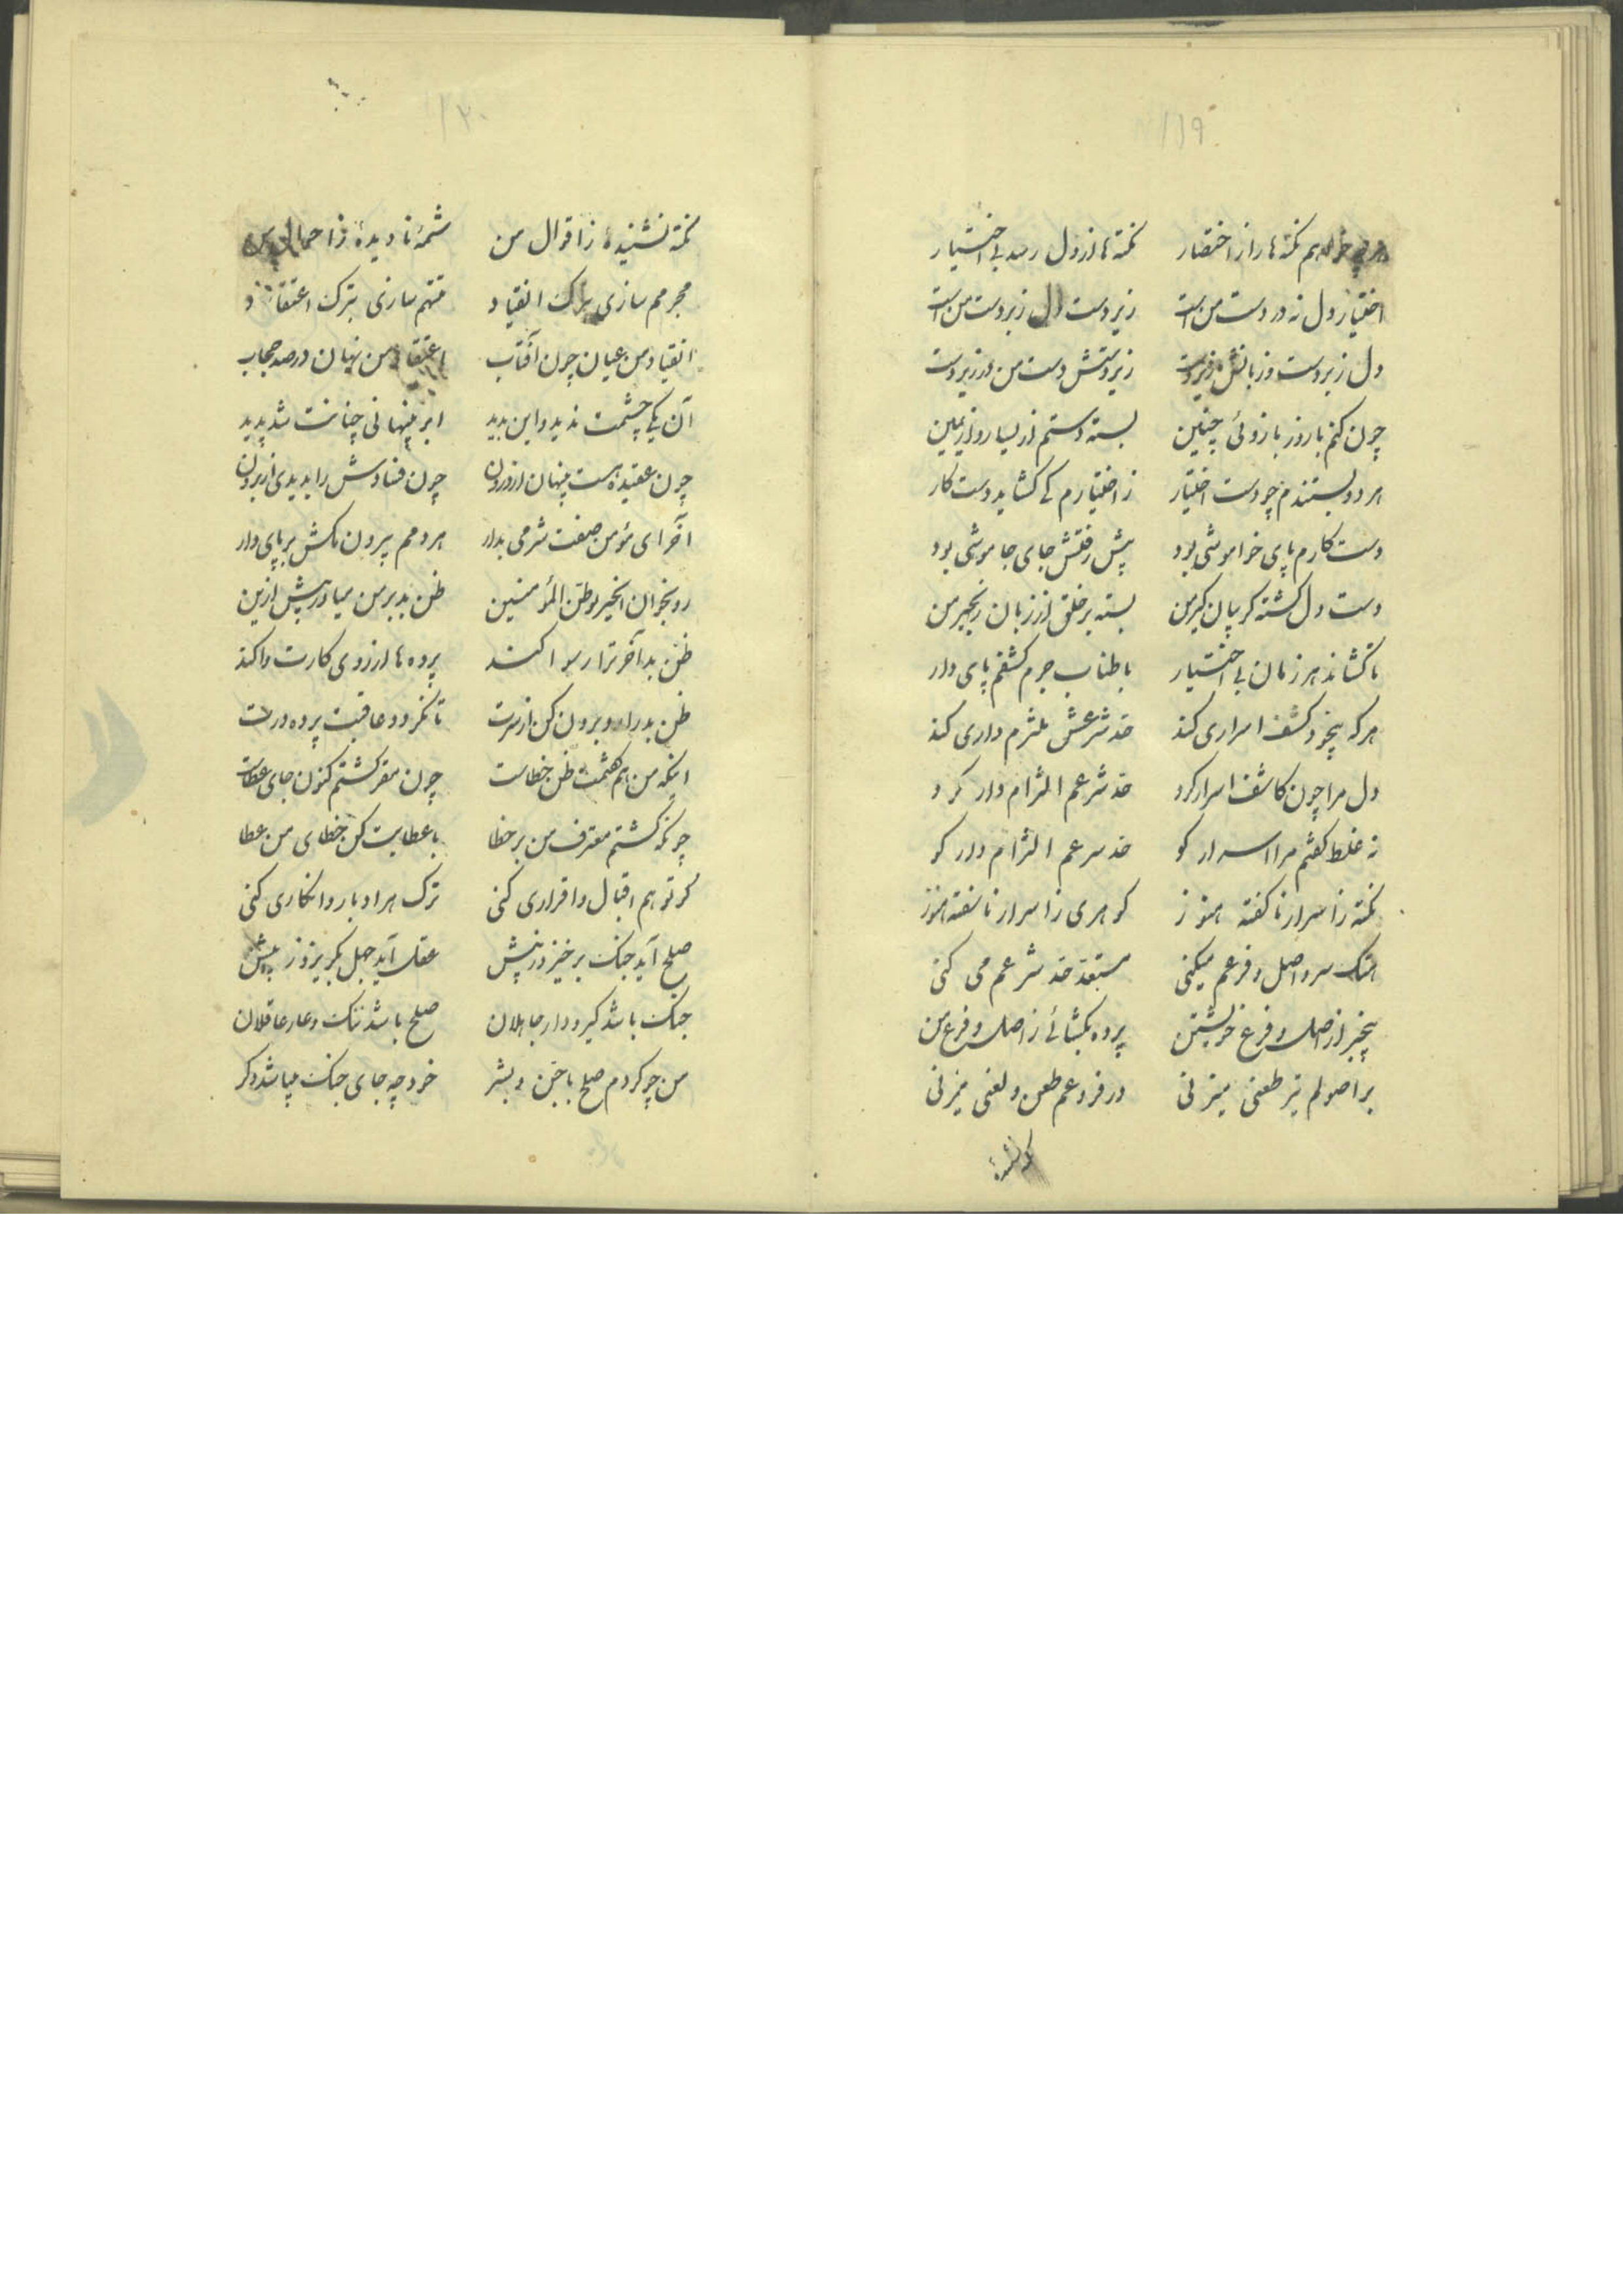 ۱۱۹
هرچه خواهم نکته‌ها را از اختصار نکته‌ها از دل رسد بی اختیار
اختیار دل نه در دست من است زیردست دل زبردست من است
دل زبردست و زبانش زیردست زیردستش دست من در زیردست
چون کنم با روز بازوئی چنین بسته دستم از یسار و از یمین
هر دو بستندم چو دست اختیار ز اختیارم کی کشاید دست کار
دست کارم پای خواموشی بود پیش رفتش جای جاموشی بود
دست دل کشته کریبان کیر من بسته بر خلق از زبان زنجیر من
تا کشاند هر زمان بی اختیار با طناب جرم کشفم پای دار
هر که بیخود کشف اسراری کند حد شرعش ملتزم داری کند
دل مرا چون کاشف اسرار کرد حد شرعم التزام دار کرد
نه غلط کفتم مرا اسرار کو حد سرعم التزام دار کو
نکته ز اسرار نا کفته هنوز کوهری ز اسرار نا سفته هنوز
هتک سر و اصل و فرعم میکنی مستعد حد شرعم می کنی
بیخبر از اصل و فرع خویشتن پرده بکشائی ز اصل و فرع من
بر اصولم تیر طعنی میزنی در فروعم طعن و لعنی میزنی
نکته نشنیدۀ
۱۲۰
نکته نشنیدۀ ز اقوال من شمۀ نادیدۀ ز احوال من
مجرمم سازی بترک انقیاد متهم سازی بترک اعتقاد
انقیاد من عیان چون آفتاب اعتقاد من نهان در صد حجاب
آن یکی چشمت ندید و این بدید ابر پنهانی چنانت شد پدید
چون عقیده‌ست پنهان از درون چون فسادش را بدیدی از برون
آخر ای مؤمن صفت شرمی بدار هر دمم بیرون مکش بر پای دار
رو بخوان الخیر لوظن المؤمنین ظن بد بر من میاور پیش ازین
ظن بد آخر ترا رسوا کند پرده‌ها از روی کارت وا کند
ظن بد را رو برون کن از سرت تا نکردد عاقبت پرده درت
اینکه من هم کفتمت ظن خطاست چون مقر کشتم کنون جای عطاست
چونکه کشتم معترف من بر خطا با عطایت کن خطای من عطا
کر تو هم اقبال و اقراری کنی ترک هر ادبار و انکاری کنی
صلح آید جنک برخیزد ز پیش عقل آید جهل بکریزد ز پیش
جنک باشد کیر و دار جاهلان صلح باشد ننک و عار عاقلان
من چو کردم صلح با جن و بشر خود چه جای جنک میباشد دکر